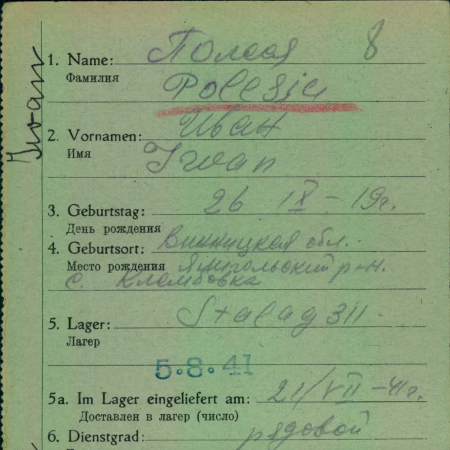 Iwan
1. Name: 8
Фамилия
2. Vornamen: Иван
Имя Iwan
3. Geburtstag: 26 IX - 19г.
День рождения
4. Geburtsort: Винницкая обл.
Место рождения Ямпольский р-н.
с. Клембовка
5. Lager: Stalag 311.
Лагер
5.8.41
5a. Im Lager eingeliefert am: 21/VII-41г.
Доставлен в лагер (число)
6. Dienstgrad: рядовой